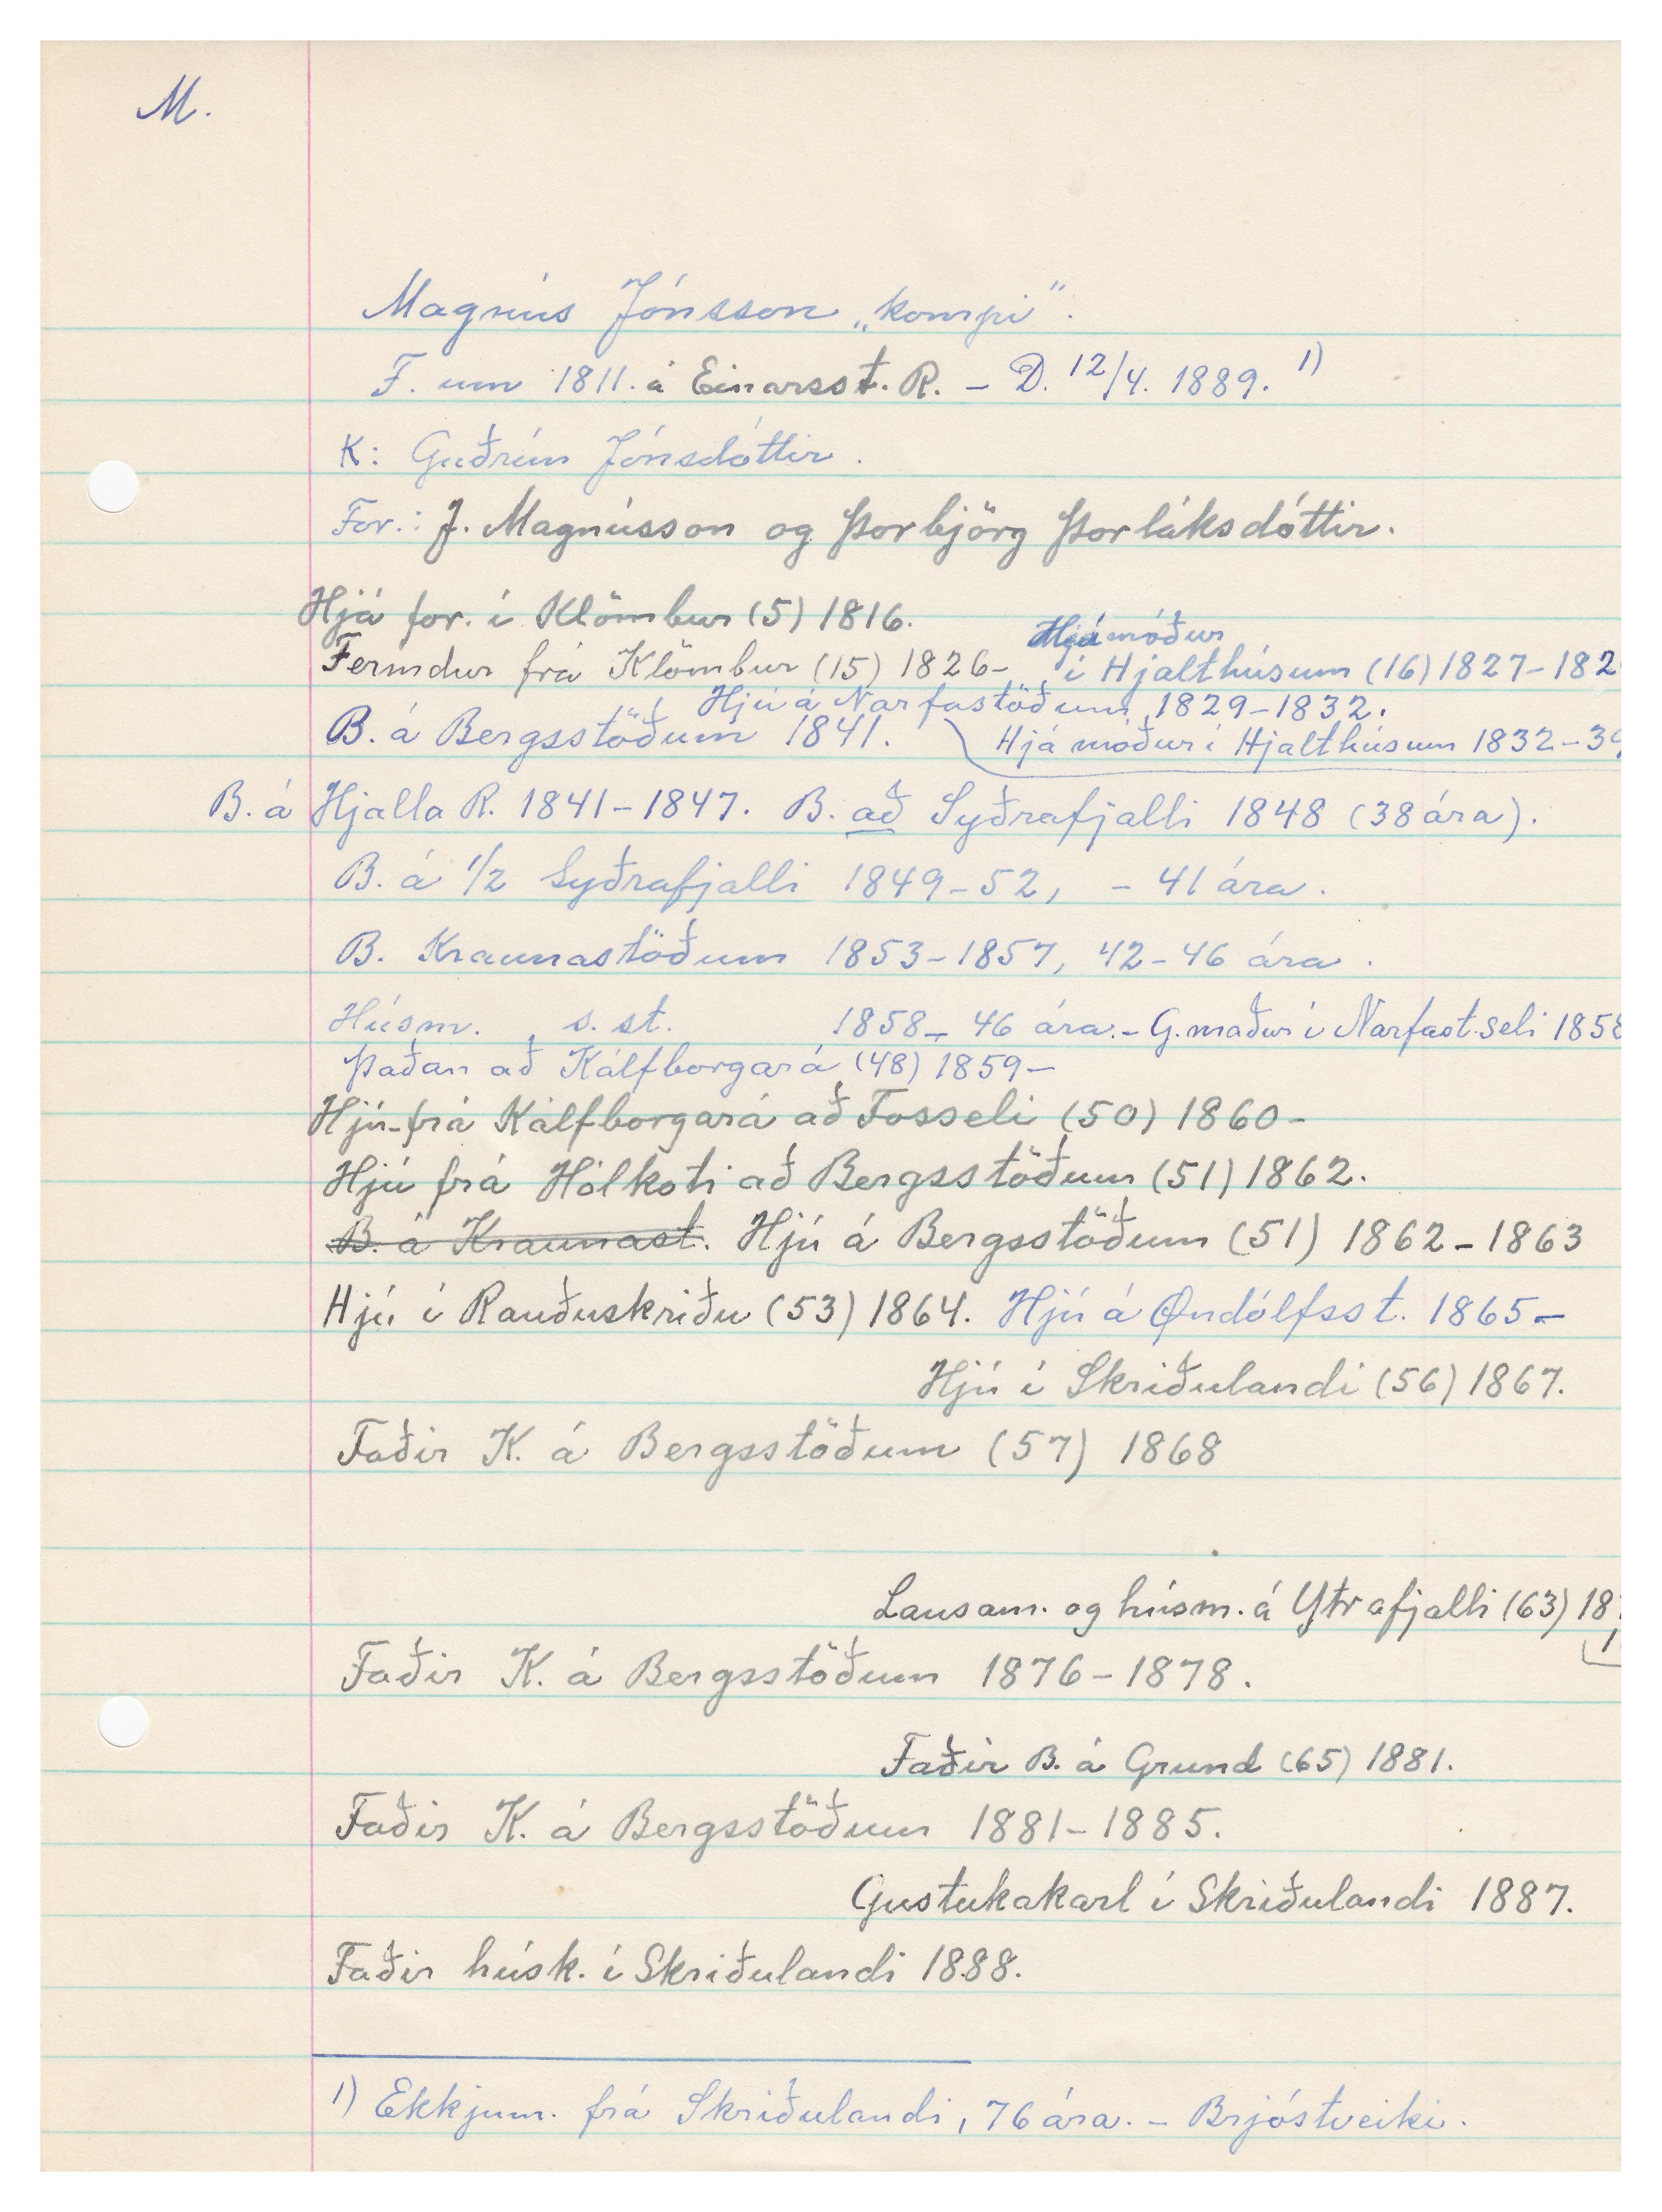 M.
Magnús Jónsson „kompi".
F. um 1811. á Einarsst. R. – D. 12/4. 1889. 1)
K: Guðrún Jónsdóttir.
For.: J. Magnússon og Þorbjörg Þorláksdóttir.
Hjá for. í Klömbur (5) 1816.
Hjá móður
Fermdur frá Klömbur (15) 1826– í Hjalthúsum (16) 1827–182
Hjú á Narfastöðum 1829–1832.
B. á Bergsstöðum 1841. Hjá móður í Hjalthúsum 1832–39
B. á Hjalla R. 1841–1847. B. að Syðrafjalli 1848 (38 ára).
B. á 1/2 Syðrafjalli 1849–52, – 41 ára.
B. Kraunastöðum 1853–1857, 42–46 ára.
Húsm. s. st. 1858– 46 ára.– G.maður í Narfast.seli 1858
Þaðan að Kálfborgará (48) 1859–
Hjú frá Kálfborgará að Fosseli (50) 1860–
Hjú frá Hólkoti að Bergsstöðum (51) 1862.
B. á Kraunast. Hjú á Bergsstöðum (51) 1862–1863
Hjú í Rauðuskriðu (53) 1864. Hjú á Öndólfsst. 1865–
Hjú í Skriðulandi (56) 1867.
Faðir K. á Bergsstöðum (57) 1868
Lausam. og húsm. á Ytrafjalli (63) 18
Faðir K. á Bergsstöðum 1876–1878.
Faðir B. á Grund (65) 1881.
Faðir K. á Bergsstöðum 1881–1885.
Gustukakarl í Skriðulandi 1887.
Faðir húsk. í Skriðulandi 1888.
1) Ekkjum. frá Skriðulandi, 76 ára. – Brjóstveiki.